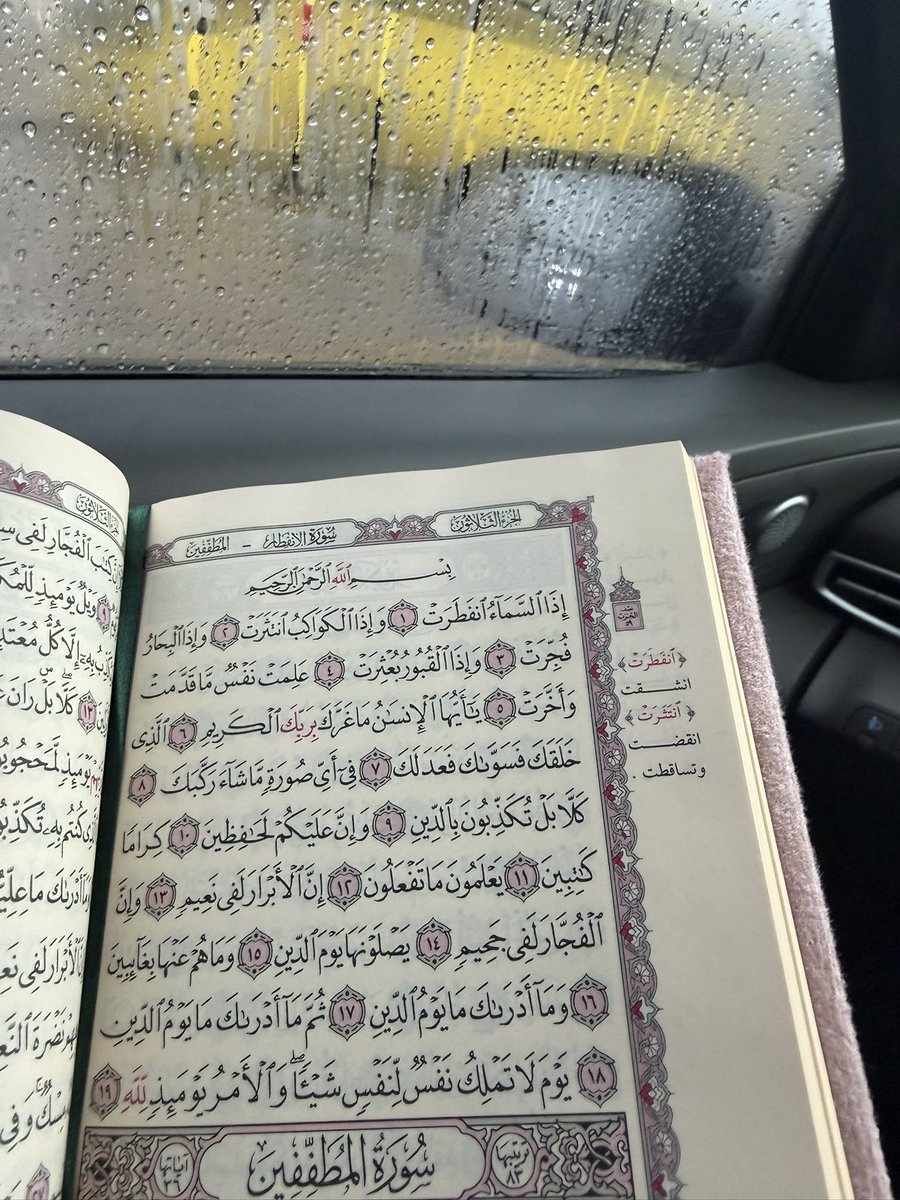 الجزء الثلاثون
سورة الانفطار - المطففين
بِسْمِ ٱللَّهِ ٱلرَّحْمَٰنِ ٱلرَّحِيمِ
إِذَا ٱلسَّمَآءُ ٱنفَطَرَتْ ١ وَإِذَا ٱلْكَوَاكِبُ ٱنتَثَرَتْ ٢ وَإِذَا ٱلْبِحَارُ
فُجِّرَتْ ٣ وَإِذَا ٱلْقُبُورُ بُعْثِرَتْ ٤ عَلِمَتْ نَفْسٌ مَّا قَدَّمَتْ
وَأَخَّرَتْ ٥ يَٰٓأَيُّهَا ٱلْإِنسَٰنُ مَا غَرَّكَ بِرَبِّكَ ٱلْكَرِيمِ ٦ ٱلَّذِى
خَلَقَكَ فَسَوَّىٰكَ فَعَدَلَكَ ٧ فِىٓ أَىِّ صُورَةٍ مَّا شَآءَ رَكَّبَكَ ٨
كَلَّا بَلْ تُكَذِّبُونَ بِٱلدِّينِ ٩ وَإِنَّ عَلَيْكُمْ لَحَٰفِظِينَ ١٠ كِرَامًا
كَٰتِبِينَ ١١ يَعْلَمُونَ مَا تَفْعَلُونَ ١٢ إِنَّ ٱلْأَبْرَارَ لَفِى نَعِيمٍ ١٣ وَإِنَّ
ٱلْفُجَّارَ لَفِى جَحِيمٍ ١٤ يَصْلَوْنَهَا يَوْمَ ٱلدِّينِ ١٥ وَمَا هُمْ عَنْهَا بِغَآئِبِينَ
١٦ وَمَآ أَدْرَىٰكَ مَا يَوْمُ ٱلدِّينِ ١٧ ثُمَّ مَآ أَدْرَىٰكَ مَا يَوْمُ ٱلدِّينِ
١٨ يَوْمَ لَا تَمْلِكُ نَفْسٌ لِّنَفْسٍ شَيْـًٔا ۖ وَٱلْأَمْرُ يَوْمَئِذٍ لِّلَّهِ ١٩
ترتيبها ٨٣ سُورَةُ المُطَفِّفِينَ آياتها ٣٦
﴿ ٱنفَطَرَتْ ﴾
انشقت
﴿ ٱنتَثَرَتْ ﴾
انقضت
وتساقطت .
الجزء الثلاثون
كِتَٰبَ ٱلْفُجَّارِ لَفِى
٩ وَيْلٌ يَوْمَئِذٍ
إِلَّا كُلُّ مُعْتَدٍ
١٣ كَلَّا ۖ بَلْ ۜ رَانَ
يَوْمَئِذٍ
كُنتُم بِهِۦ
أَدْرَىٰكَ مَا
ٱلْأَبْرَارَ لَفِى
نَضْرَةَ
مِسْكٌ ۚ وَفِى